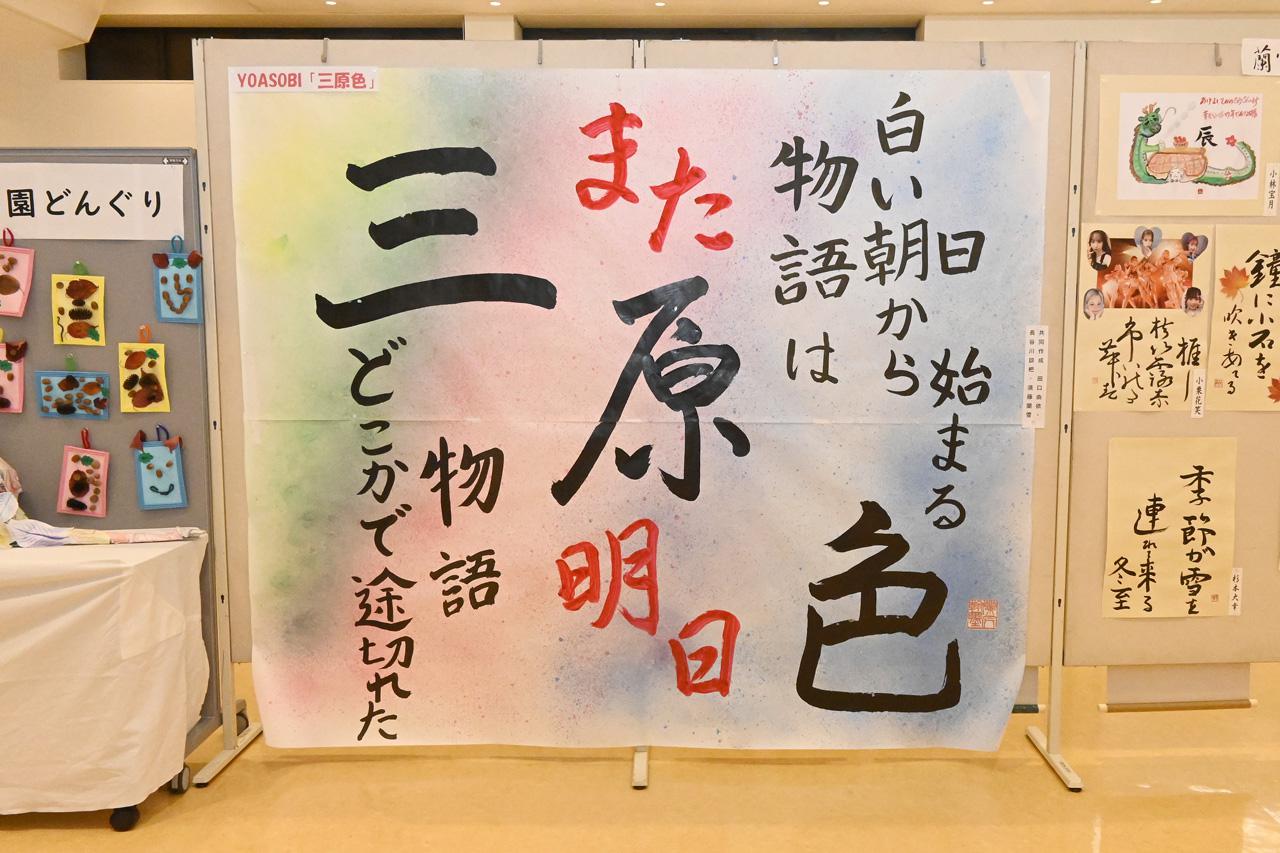 YOASOBI「三原色」
三原色
どこかで途切れた
物語
また明日
物語は
白い朝から
日
始まる
共同作成 田口
長谷川
園どんぐり
辰
小林宝月
小乗花芙
鐘に小石を
吹きあてる
季節が雪を
連れ来る
冬至
杉本大幸
蘭